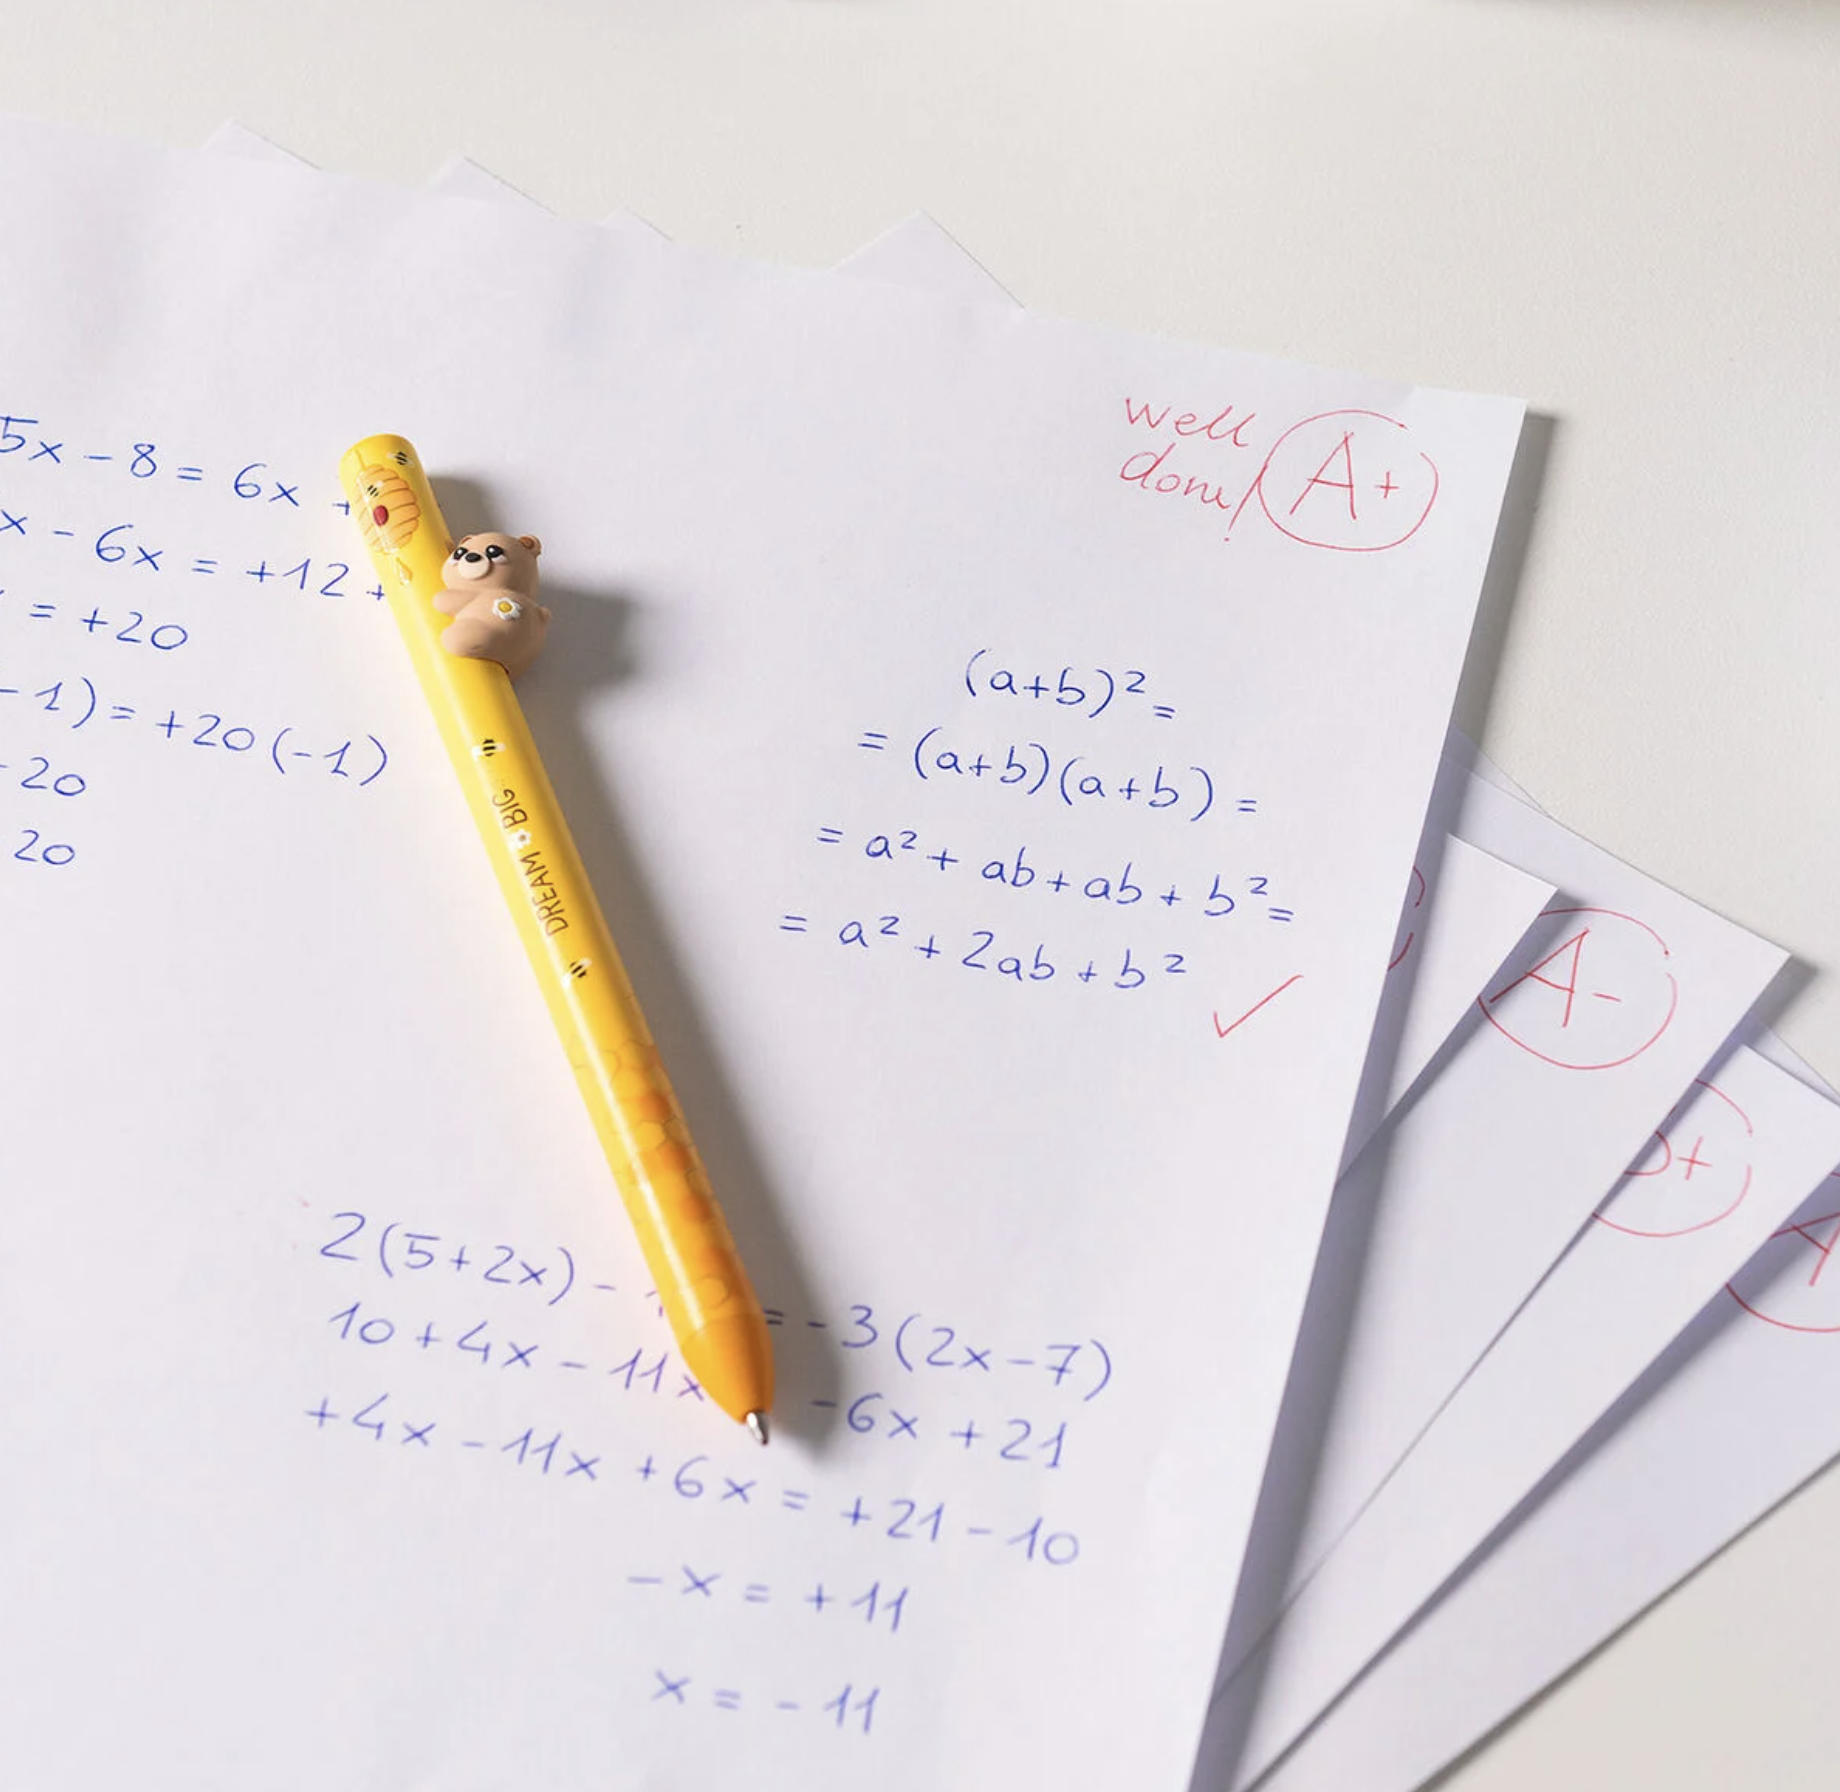 well
done! A+
5x - 8 = 6x +
x - 6x = +12 +
= +20
-1) = +20(-1)
20
20
DREAM BIG
(a+b)² =
= (a+b)(a+b) =
= a² + ab + ab + b² =
= a² + 2ab + b²
A-
+
A
2(5+2x) - = -3(2x-7)
10 + 4x - 11x -6x + 21
+4x - 11x + 6x = +21 - 10
-x = +11
x = -11